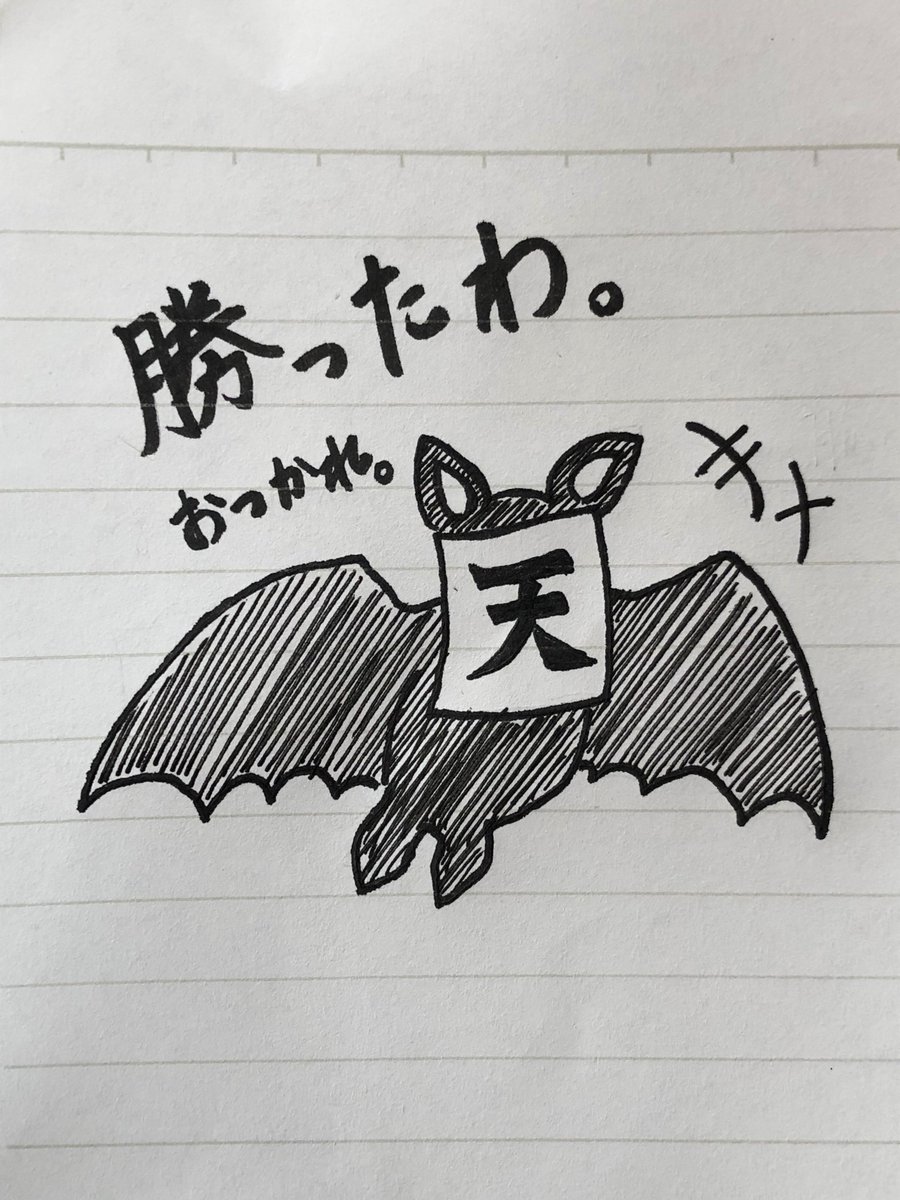 勝ったわ。
おつかれ。
天
キャ